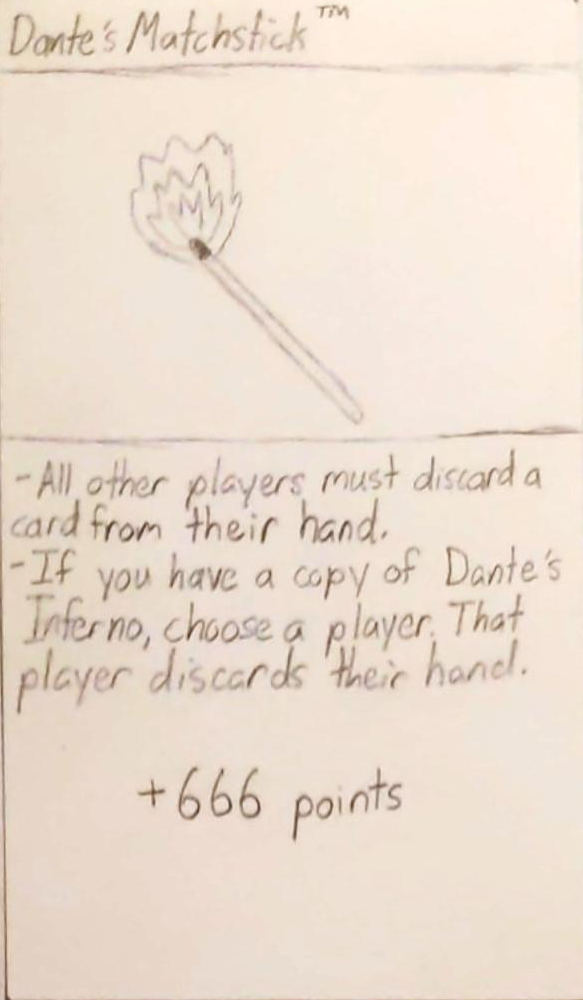 Dante's Matchstick™
-All other players must discard a
card from their hand.
-If you have a copy of Dante's
Inferno, choose a player. That
player discards their hand.
+666 points